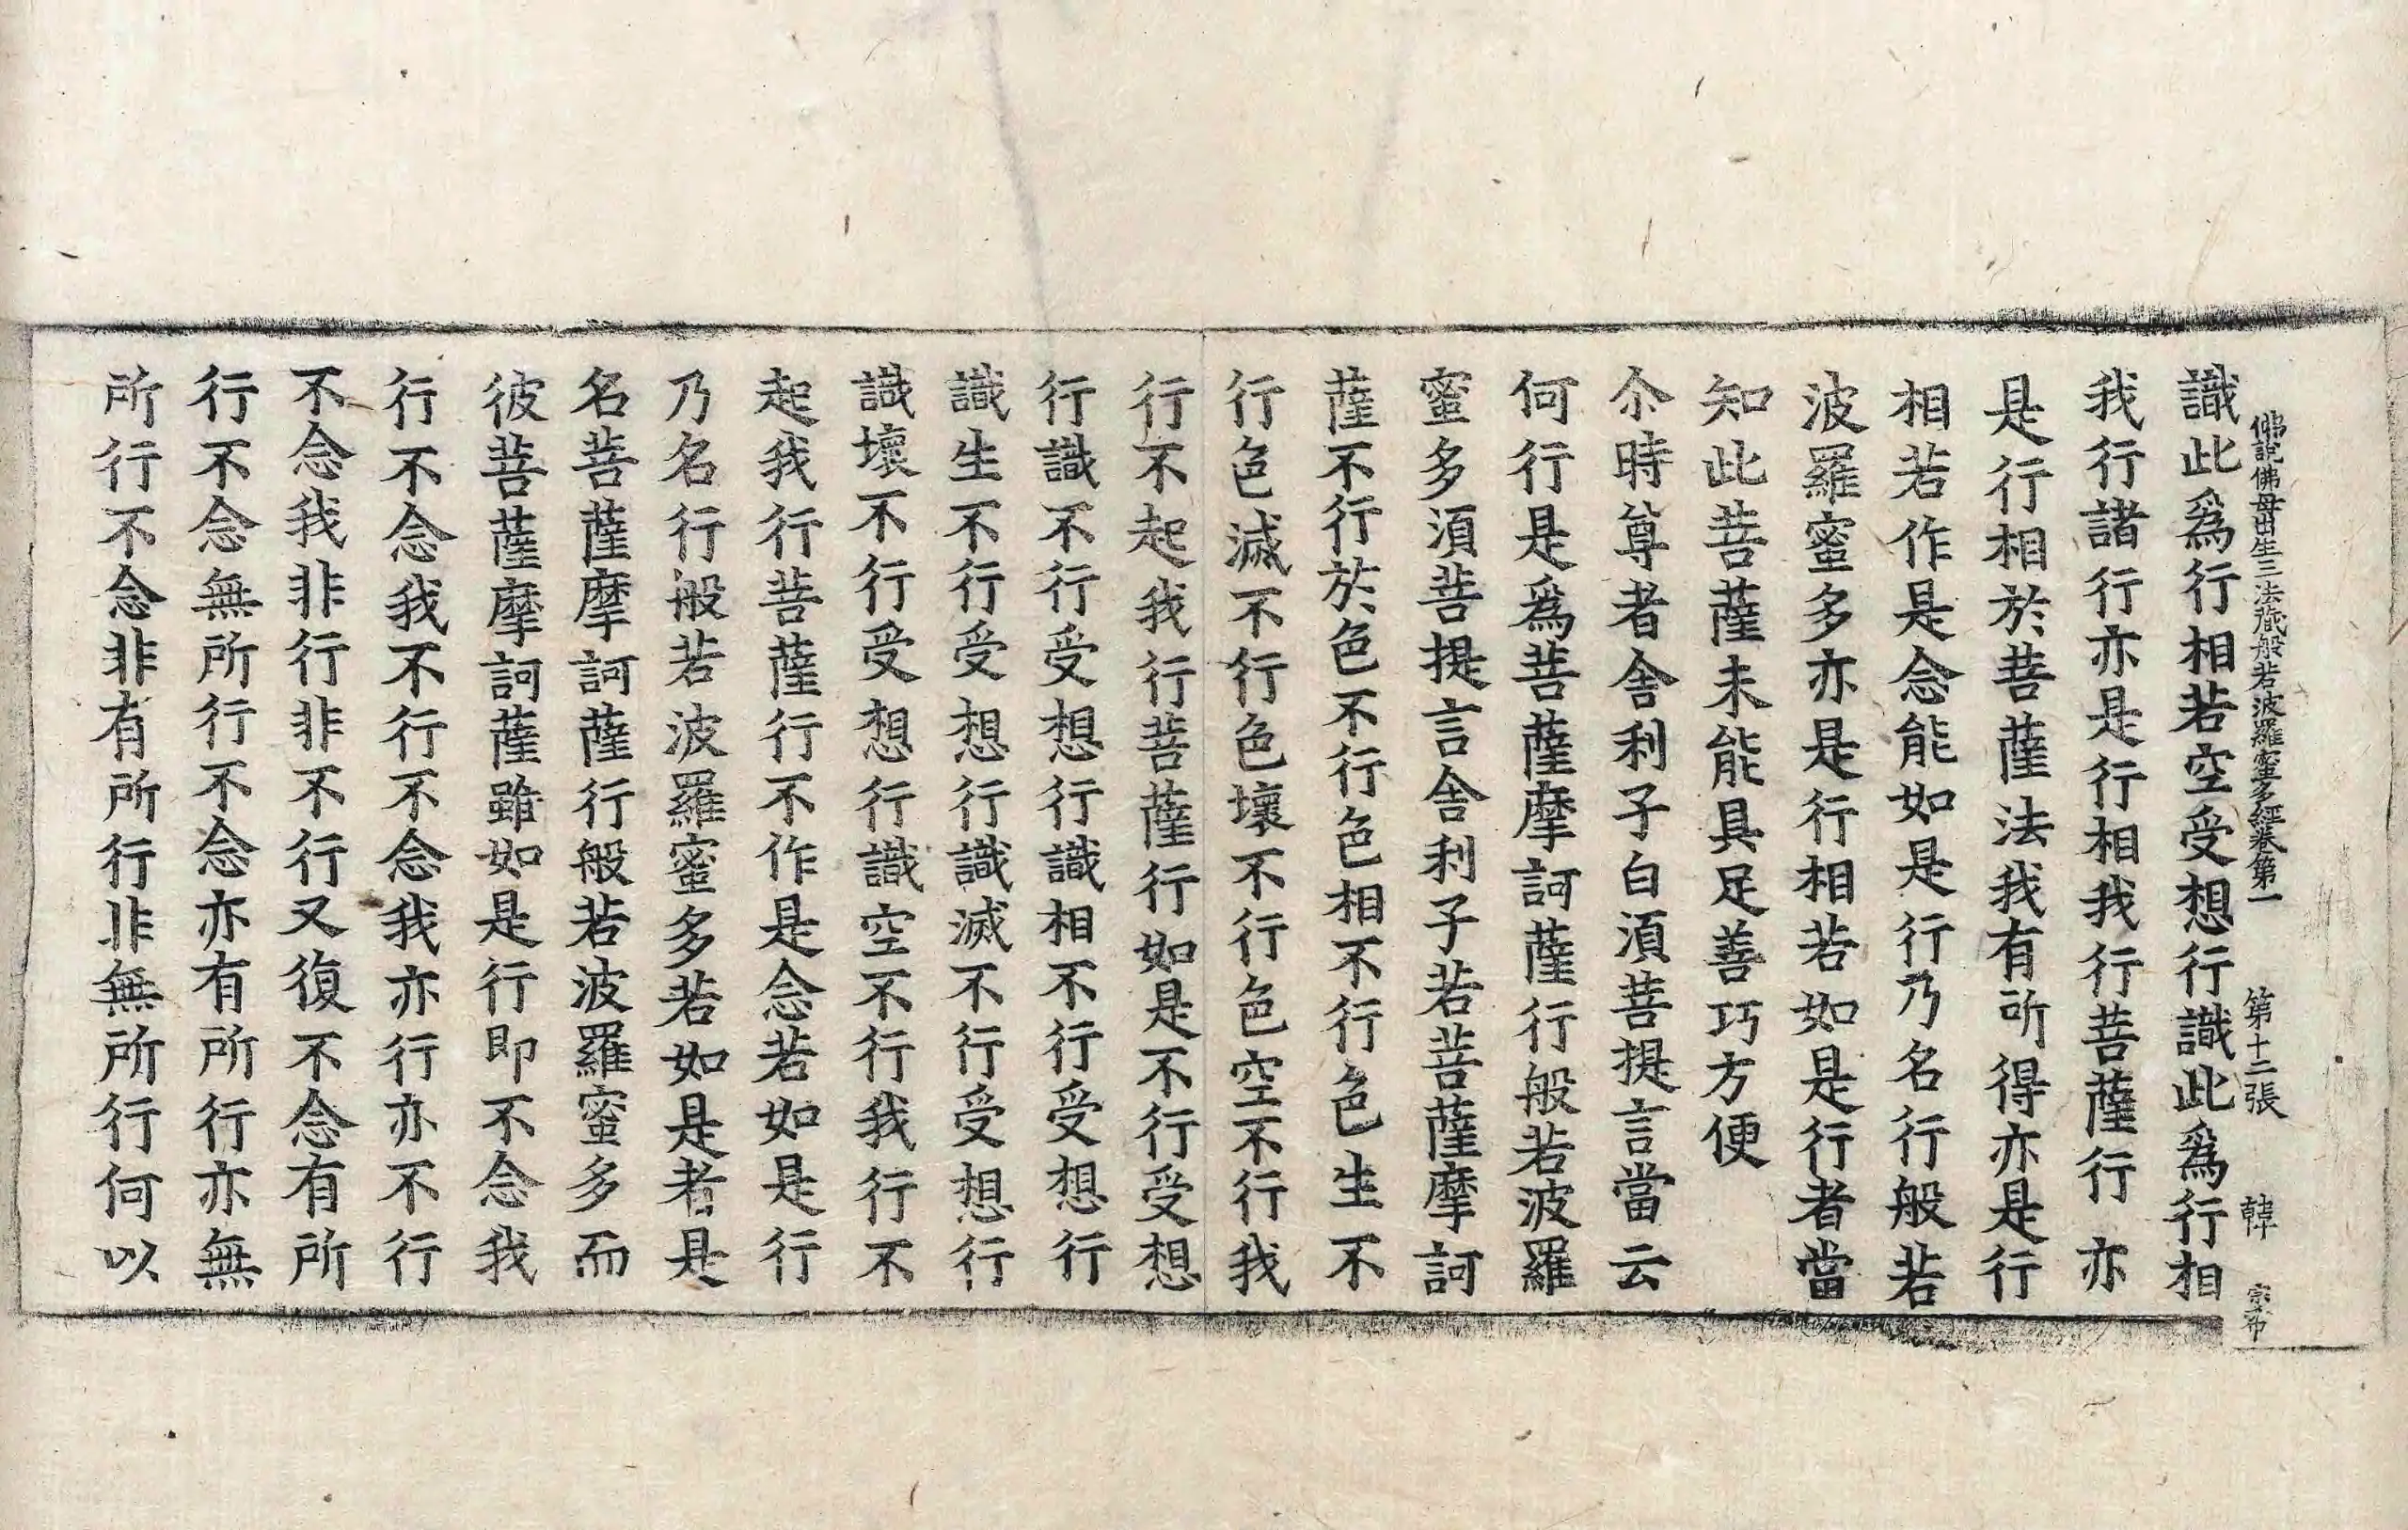 佛說佛母出生三法藏般若波羅蜜多經卷第一 第十二張 韓 宗布
識此爲行相若空受想行識此爲行相
我行諸行亦是行相我行菩薩行亦
是行相於菩薩法我有所得亦是行
相若作是念能如是行乃名行般若
波羅蜜多亦是行相若如是行者當
知此菩薩未能具足善巧方便
尒時尊者舍利子白須菩提言當云
何行是爲菩薩摩訶薩行般若波羅
蜜多須菩提言舍利子若菩薩摩訶
薩不行於色不行色相不行色生不
行色滅不行色壞不行色空不行我
行不起我行菩薩行如是不行受想
行識不行受想行識相不行受想行
識生不行受想行識滅不行受想行
識壞不行受想行識空不行我行不
起我行菩薩行不作是念若如是行
乃名行般若波羅蜜多若如是者是
名菩薩摩訶薩行般若波羅蜜多而
彼菩薩摩訶薩雖如是行即不念我
行不念我不行不念我亦行亦不行
不念我非行非不行又復不念有所
行不念無所行不念亦有所行亦無
所行不念非有所行非無所行何以